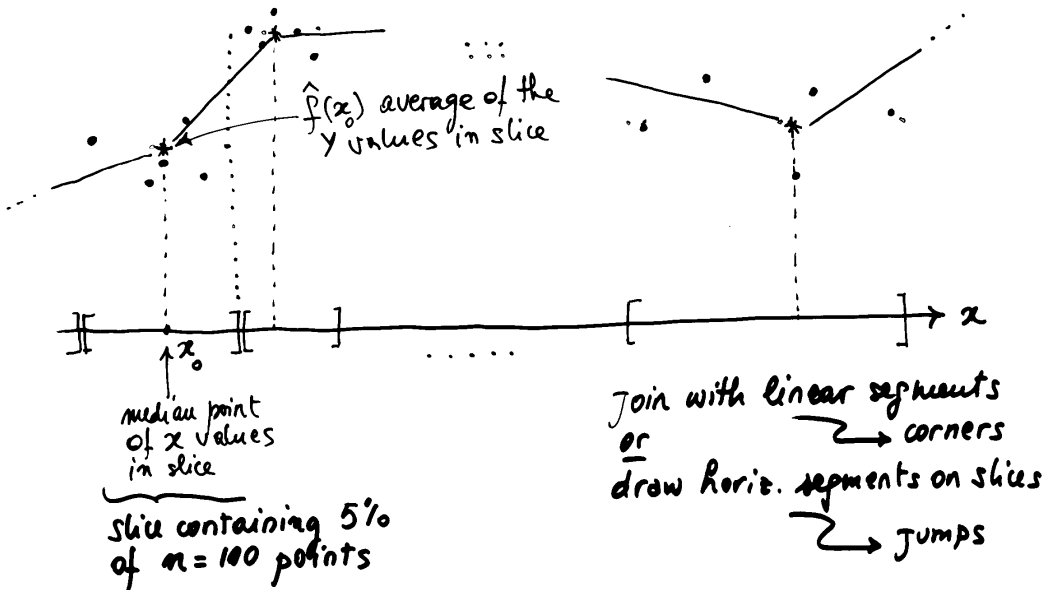 f̂(x₀) average of the
Y values in slice
x
x₀
median point
of x values
in slice
slice containing 5%
of n = 100 points
Join with linear segments
corners
or
draw horiz. segments on slices
Jumps